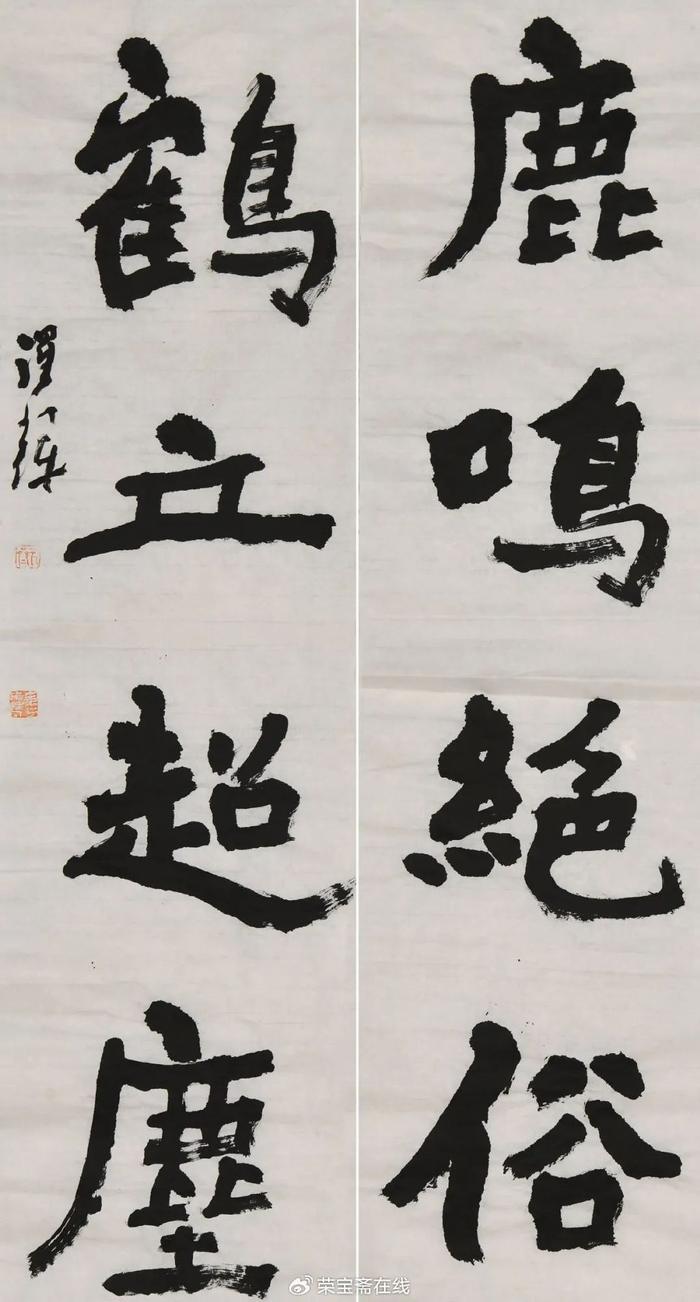 鹿鳴絕俗
鶴立超塵
荣宝斋在线